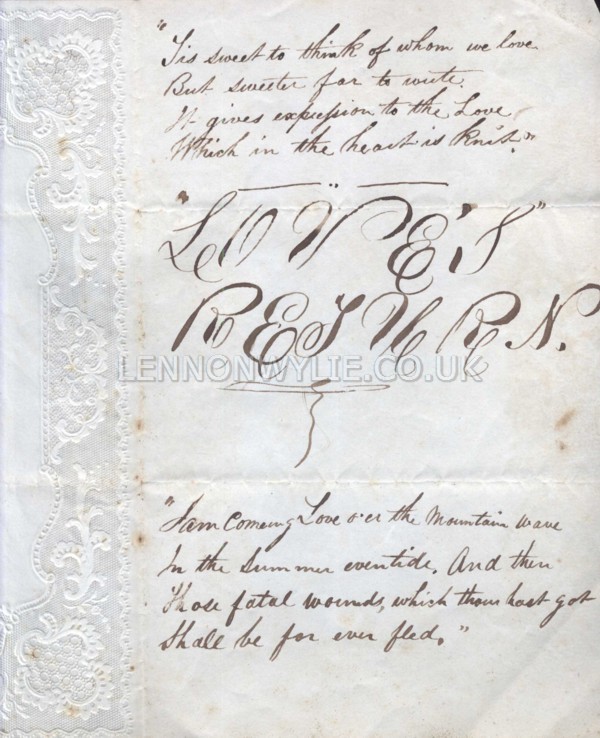 "Tis sweet to think of whom we love
But sweeter far to write.
It gives expression to the Love
Which in the heart is Knit."
"LOVE'S"
RETURN.
LENNONWYLIE.CO.UK
"I am Comeing Love o'er the Mountain wave
In the Summer eventide. And then
Those fatal wounds, which thou hast got
Shall be for ever fled."